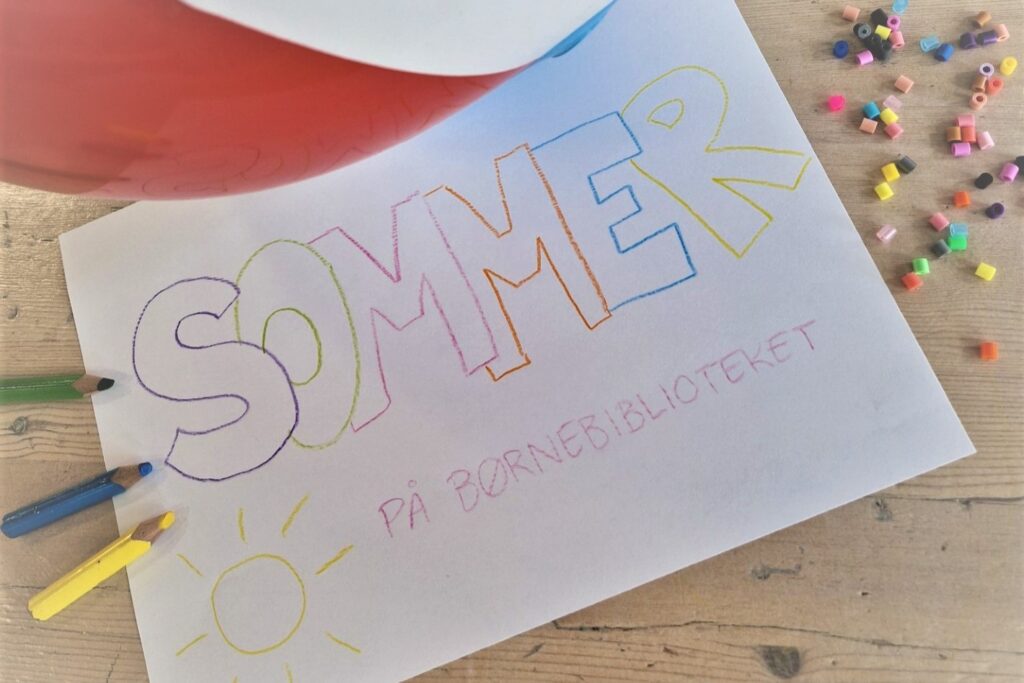 SOMMER
PÅ BØRNEBIBLIOTEKET